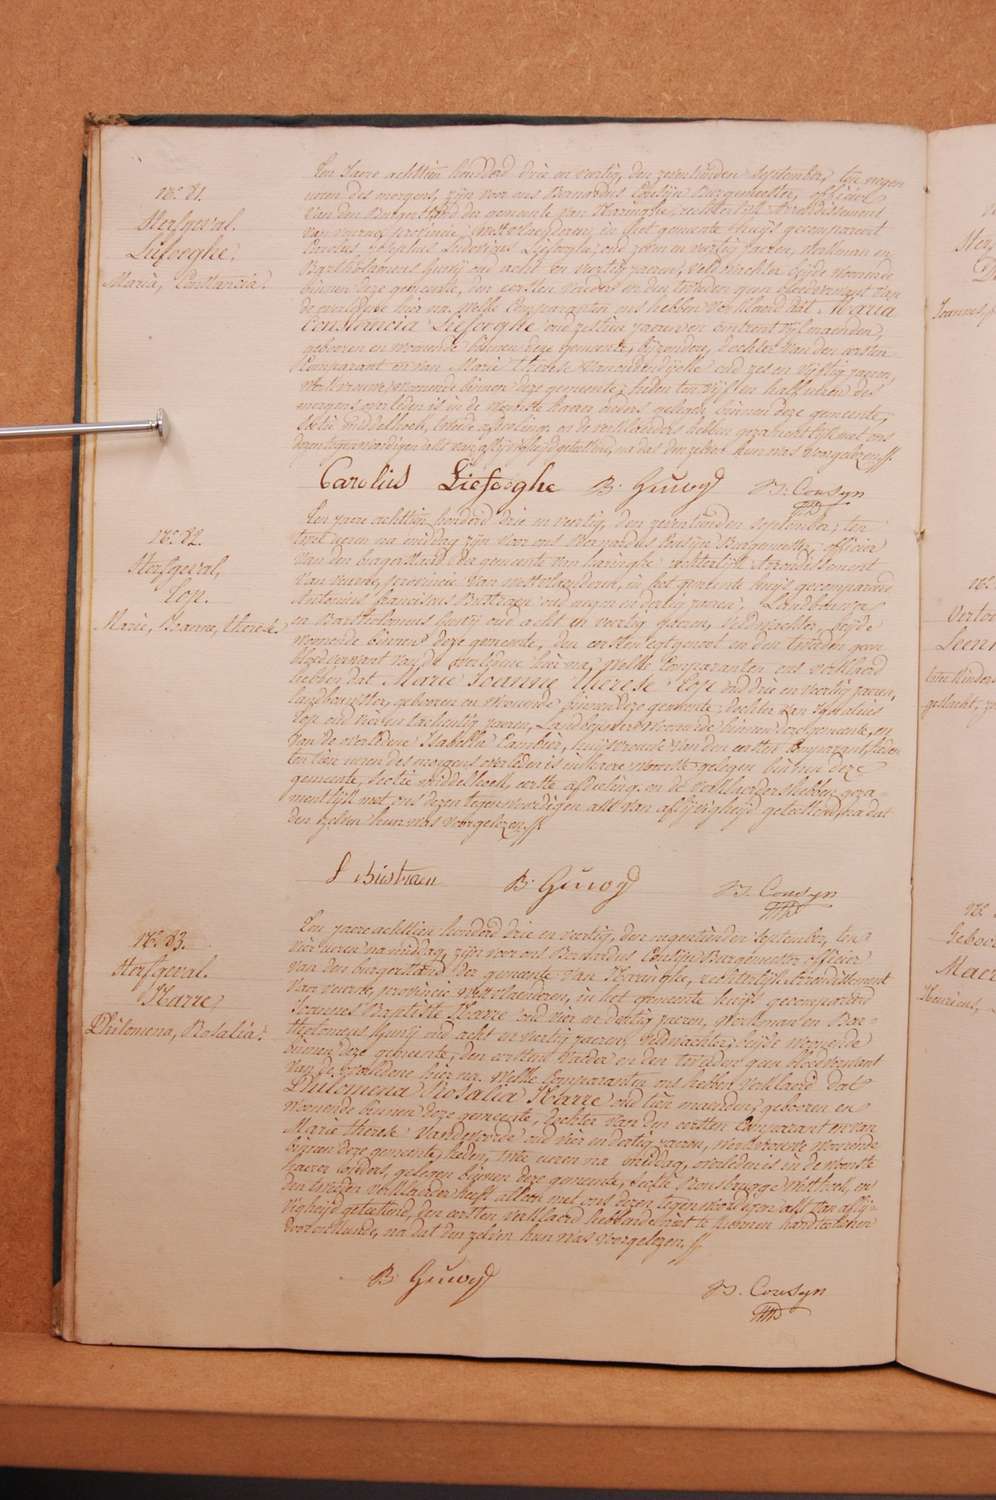 N.° 81.
Sterfgeval.
Lieferghe,
Maria, Constancia.
Ten Jaere achttien honderd drie en vertig, den zevenstenden September, ten negen
ueren des morgens, zijn voor ons Bernardus Cousijn Burgemeester, officier
van den Burgerstand der gemeente van Haringhe, rechterlijk Arrondissement
van veurne, provincie Westvlaenderen, in het gemeente huijs gecompareert
Carolus Ludovicus Lieferghe, oud zeven en vertig Jaeren, Werkman en
Bartholomeus Guwij oud acht en vertig jaeren, veldwachter beijde woonende
binnen deze gemeente, den eersten vader en den tweeden geen bloedverwant van
de overledene hier na, Welke Comparanten ons hebben verklaerd dat Maria
Constancia Lieferghe oud zestien jaeren en ontrent vijf maenden,
gebooren en woonende binnen deze gemeente, bijzondere, Dochter van den eersten
Comparant en van Marie Therese oud zes en vijftig jaeren,
Werkvrouwe woonende binnen deze gemeente; heden ten vijf en half uren des
morgens overleden is in de woonste haerer ouders gelegen binnen deze gemeente,
Sectie middelhoek, tweede afdeeling, en de verklaerders hebben gezamentlijk met ons
dezen tegenwoordigen akt van aflijvigheijd geteekend, na dat den zelven hun was voorgelezen.
Carolus Lieferghe B. Guwij B. Cousyn
N.° 82.
Sterfgeval,
Top.
Marie, Joanne, Therese.
Ten jaere achttien honderd drie en vertig, den zevenstenden September; ten
twee ueren na middag zijn voor ons Bernardus Cousijn Burgemeester officier
van den burgerstand der gemeente van haringhe rechterlijk Arrondissement
van veurne, provincie van westvlaenderen, in het gemeente huijs gecompareerd
Antonius franciscus Bustraen oud negen en dertig jaeren, Landbouwer
en Bartholomeus Guwij oud acht en vertig jaeren, veldwachter, beijde
woonende binnen deze gemeente, den eersten egtgenoot en den tweeden geen
bloedverwant van de overledene hier na, Welke Comparanten ons verklaerd
hebben dat Marie Joanne Therese Top oud drie en veertig jaeren,
landbouwster, gebooren en woonende binnen deze gemeente, dochter van Ignatius
Top oud neven tachentig jaeren, Landbouwer woonende binnen deze gemeente, en
van de overledene Isabella Cambier, huijsvrouwe van den eersten Comparant, heden
ten tien ueren des morgens overleden is in haere woonste gelegen binnen deze
gemeente, Sectie middelhoek, eerste afdeeling, en de verklaerders hebben geza-
mentlijk met ons dezen tegenwoordigen akt van aflijvigheijd geteekend, na dat
den zelven hun was voorgelezen.
Bustraen B. Guwij B. Cousyn
N.° 83.
Sterfgeval.
Harre,
Philomena, Rosalia.
Ten jaere achttien honderd drie en vertig, den negenstenden September, ten
vier ueren na middag, zijn voor ons Bernardus Cousijn Burgemeester officier
van den burgerstand der gemeente van Haringhe, rechterlijk Arrondissement
van veurne, provincie Westvlaenderen, in het gemeente huijs gecompareerd
Joannes Baptiste Harre oud vier en dertig jaeren, Werkman en Bar-
tholomeus Guwij oud acht en vertig jaeren, veldwachter, beijde woonende
binnen deze gemeente, den eersten vader en den tweeden geen bloedverwant
van de overledene hier na. Welke Comparanten ons hebben verklaerd dat
Philomena Rosalia Harre oud tien maenden, gebooren en
woonende binnen deze gemeente, dochter van den eersten Comparant en van
Marie therese Vandevoorde oud vier en dertig jaeren, werkvrouwe woonende
binnen deze gemeente, heden, twee ueren na middag, overleden is in de woonste
haerer ouders, gelegen binnen deze gemeente, Sectie Rousbrugge Westhoek, en
den tweeden verklaerder heeft alleen met ons dezen tegenwoordigen akt van aflij-
vigheijd geteekend, den eersten verklaerd hebbende niet te konnen
door onkunde, na dat den zelven hun was voorgelezen.
B. Guwij B. Cousyn
Joannes
Leenen
geslacht,
Maer
Henricus,